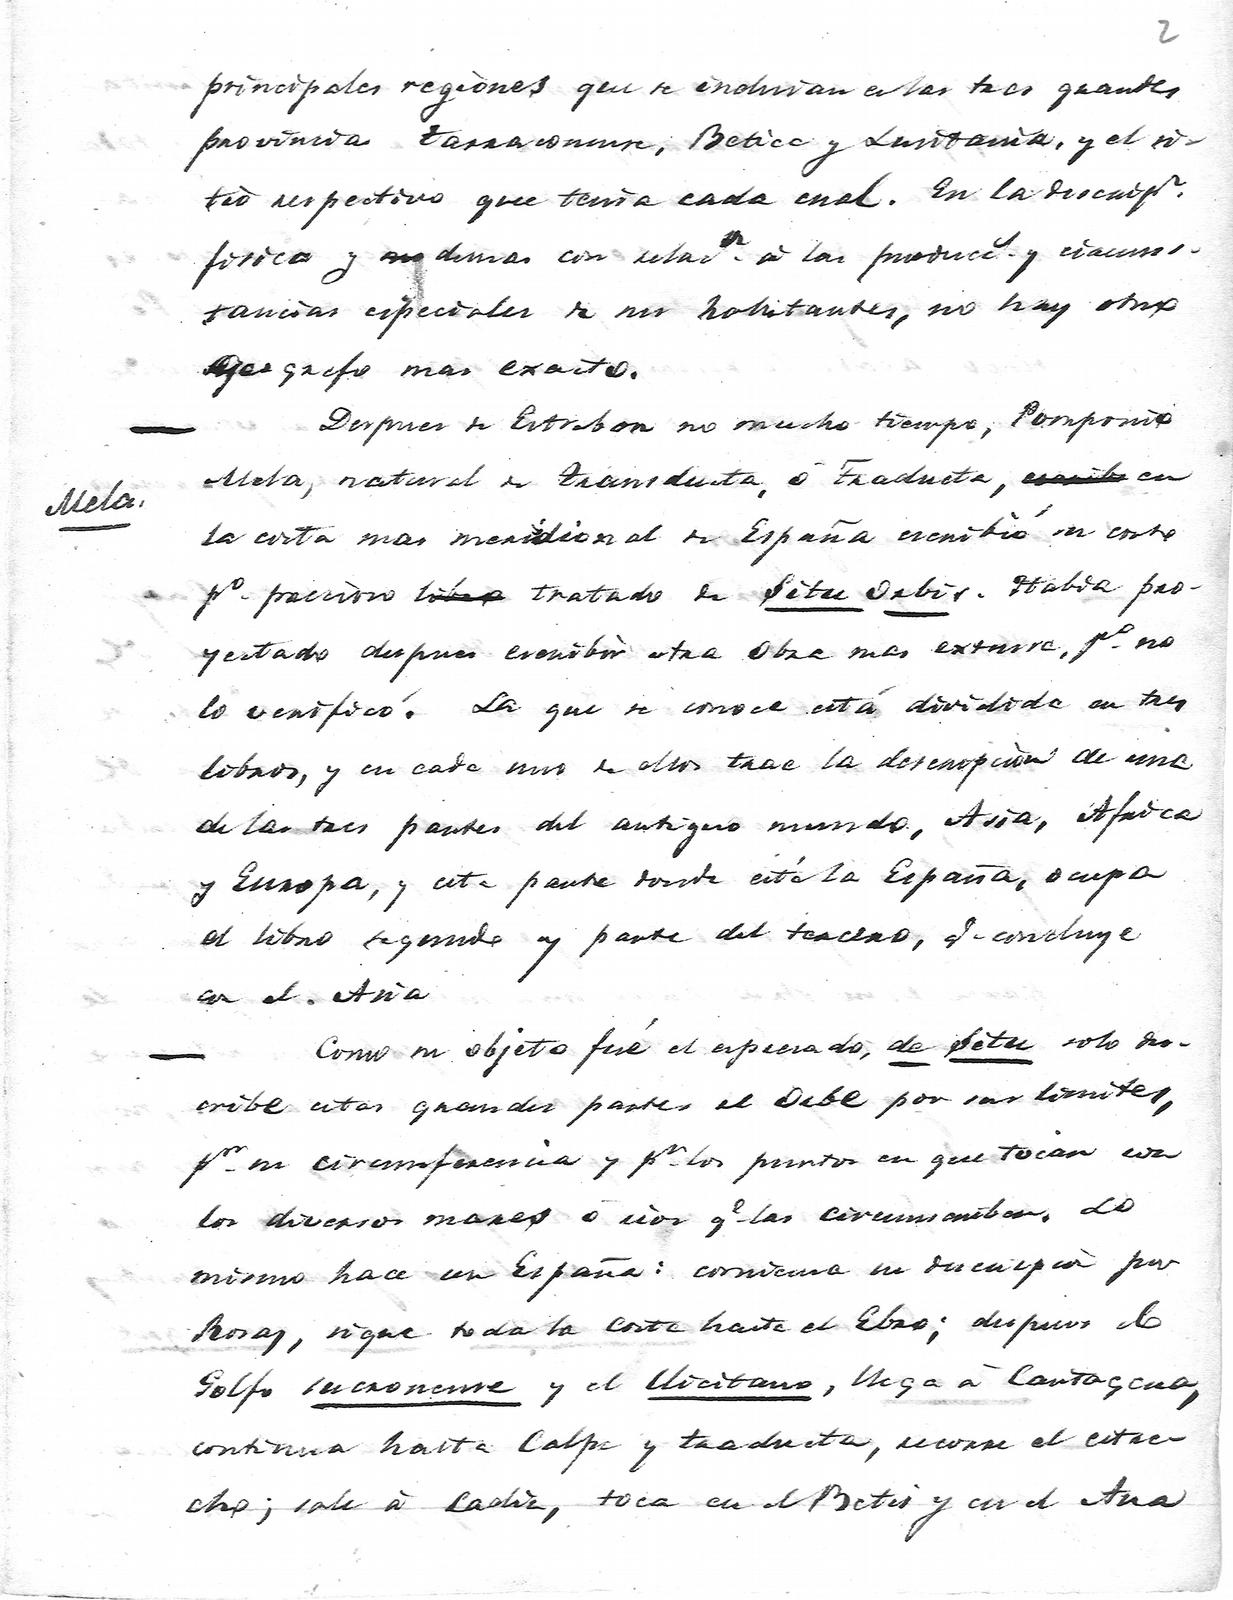 2
principales regiones que se incluian en las tres grandes
provincias Tarraconense, Betica y Lusitania, y el si-
tio respectivo que tenia cada cual. En la descripn.
fisica y demas con relacn. á las producs. y circuns-
tancias especiales de sus habitantes, no hay otro
geografo mas exacto.
Despues de Estrabon no mucho tiempo, Pomponio
Mela.
Mela, natural de Transducta, ó Traducta, escribe en
la costa mas meridional de España escribió su corto
po. precioso libro tratado de Situ Orbis. Habia pro-
yectado despues escribir otra obra mas extensa, po. no
lo verificó. La que se conoce está dividida en tres
libros, y en cada uno de ellos trae la descripcion de una
de las tres partes del antiguo mundo, Asia, Africa
y Europa, y esta parte donde está la España, ocupa
el libro segundo y parte del tercero, q. concluye
con el Asia
Como su objeto fué el expresado, de Situ solo des-
cribe estas grandes partes del Orbe por sus limites,
pr. su circumferencia y pr. los puntos en que tocan con
los diversos mares ó rios qe. las circunscriben. Lo
mismo hace en España: comienza su descripcion por
Rosas, sigue toda la costa hasta el Ebro; despues el
Golfo sucronense y el Ilicitano, llega á Cartagena,
continua hasta Calpe y traducta, recorre el estre-
cho; sale á Cadiz, toca en el Betis y en el Ana